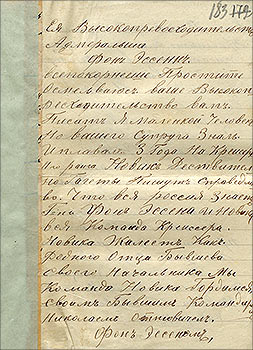 183
Ея Высокопревосходительств
Адмеральши
Фонъ Эссенъ
Всепокорнеше Простите
Осмеливаюс ваше Высокоп
ресходительство вамъ
Писатъ Я Маленкой Человек
Но вашего Супруга Знал
И плавал 3 Года На Крейсер
Новик
но Газеты Пишут Справедл
во. Что вся россия Знает
Фонъ Эссена и Новика
вся Команда Крейсера
Новика Жалеет Какъ
Родного Отца Бывшева
своего Начальника Мы
Команда Новика Гордимся
своимъ Бывшимъ Командир
Николаем Оттовичем
Фонъ Эссеномъ,